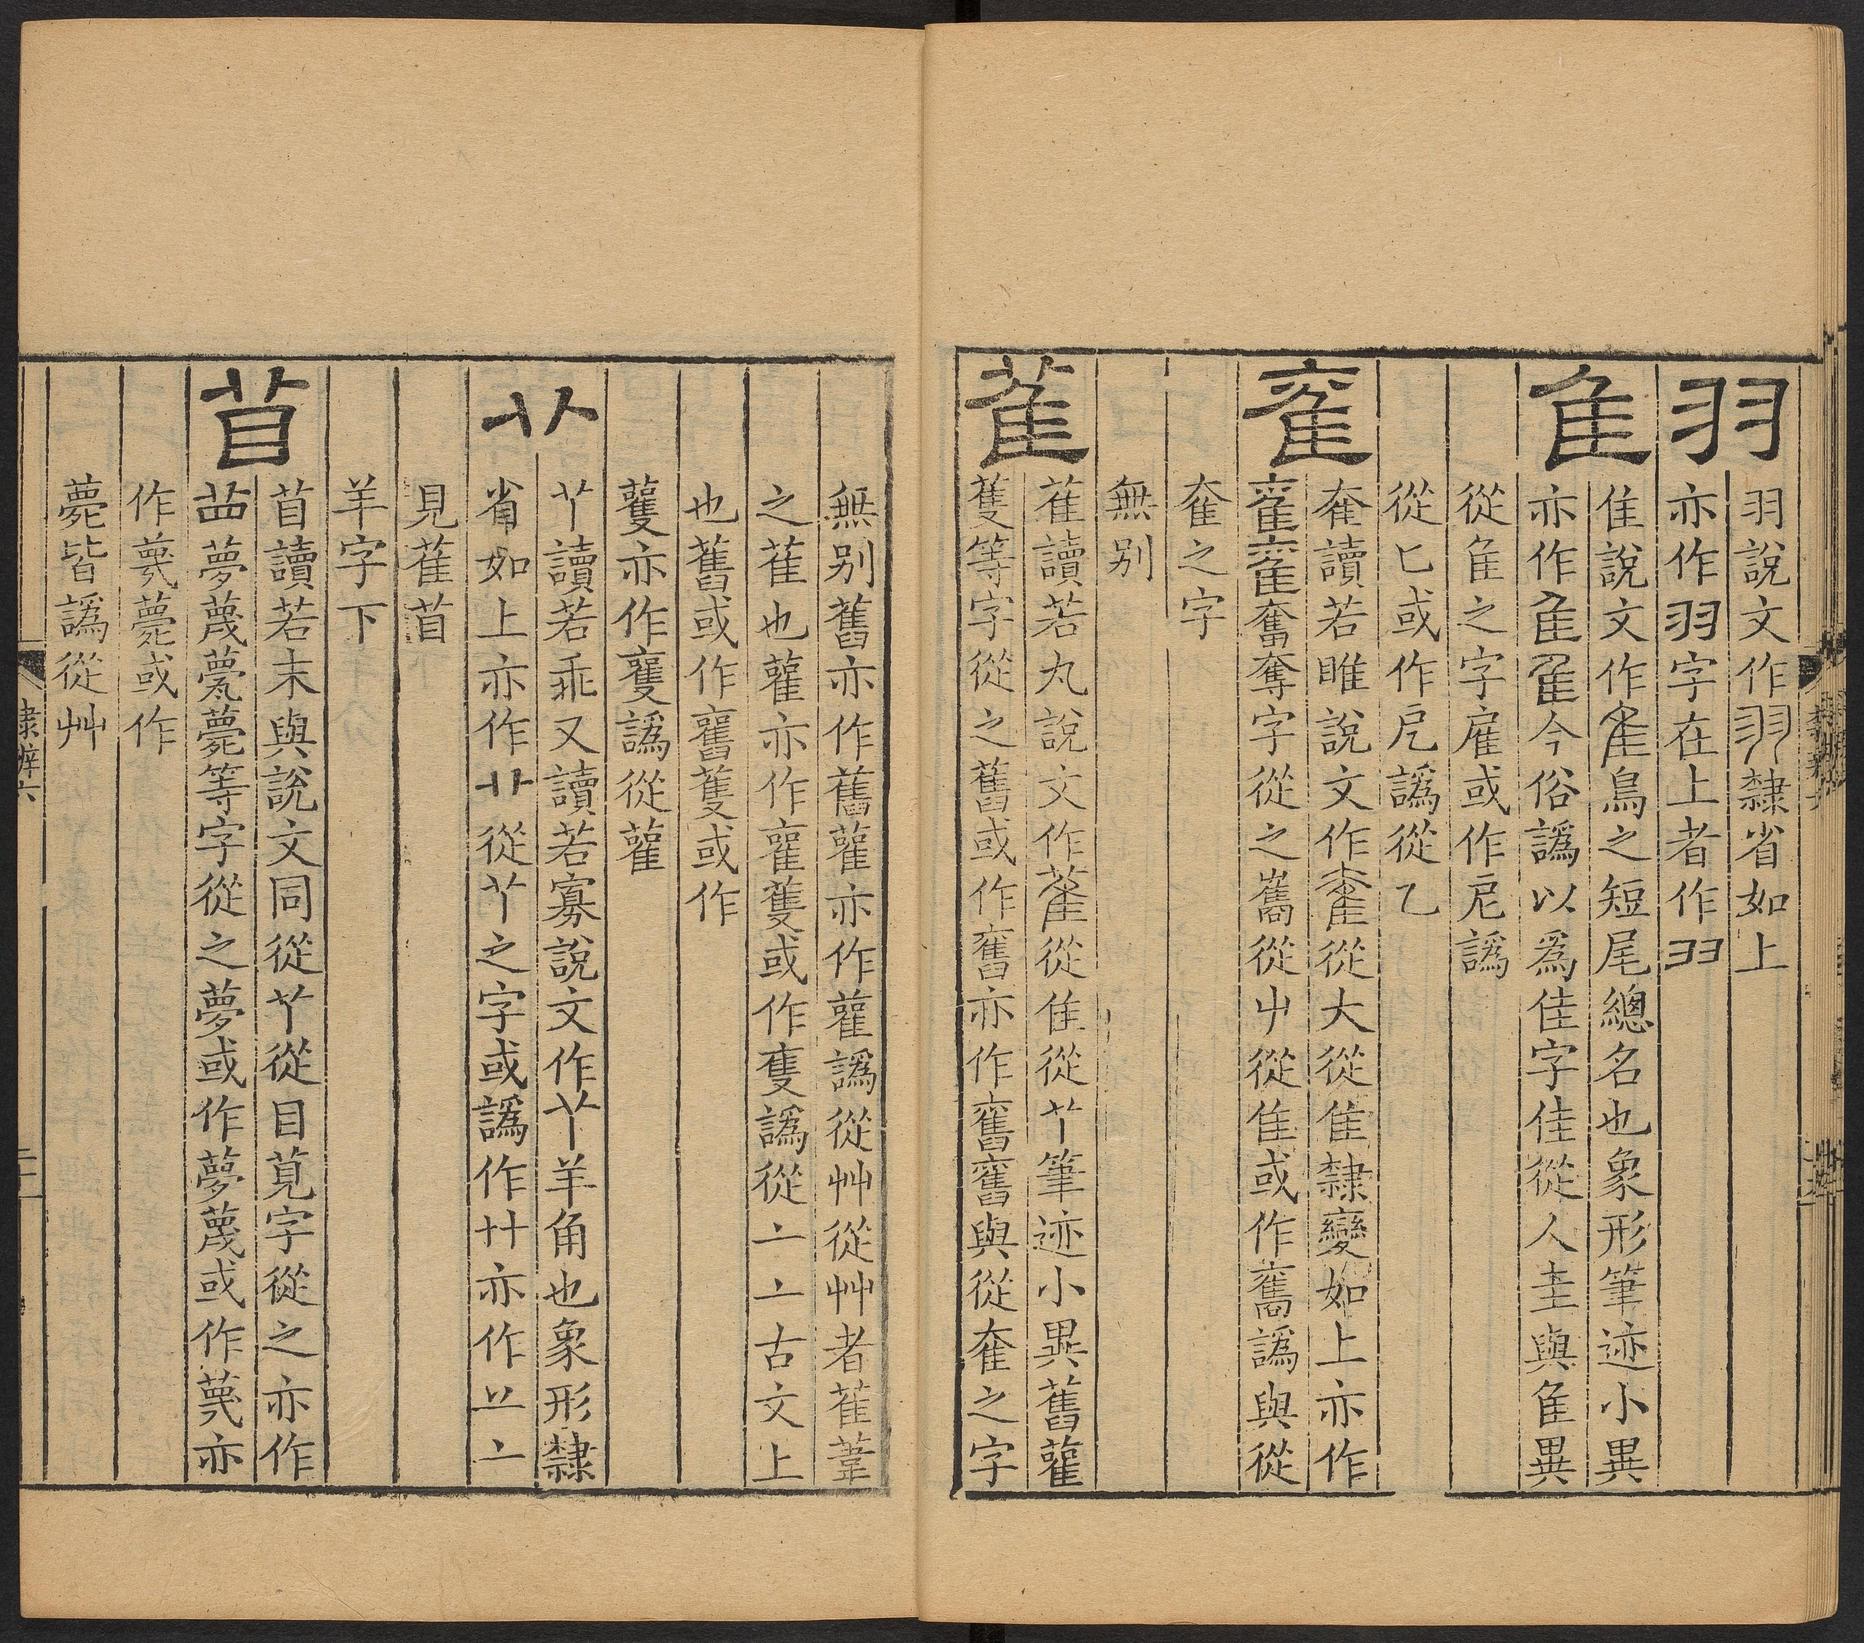 羽
羽說文作羽隸省如上
亦作羽字在上者作
隹
隹說文作隹鳥之短尾總名也象形筆迹小異
亦作隹今俗譌以爲佳字佳從人圭與隹異
從隹之字雇或作譌
從匕或作譌從乙
奞
奞讀若睢說文作奞從大從隹隸變如上亦作
奮奪字從之巂從屮從隹或作譌與從
奞之字
無别
雈
雈讀若丸說文作雈從隹從𦫳筆迹小異舊雚
蒦等字從之舊或作亦作與從奞之字
無别舊亦作舊雚亦作雚譌從艸從艸者萑葦
之萑也雚亦作蒦或作隻譌從亠亠古文上
也舊或作蒦或作
亦作譌從雚
𦫳
𦫳讀若乖又讀若寡說文作𦫳羊角也象形隸
省如上亦作從𦫳之字或譌作卄亦作䒑亠
見雈𥄕
羊字下
𥄕
𥄕讀若末與說文同從𦫳從目莧字從之亦作
夢蔑甍薨等字從之夢或作夢蔑或作亦
作薨或作
薨皆譌從艸
隸辨六